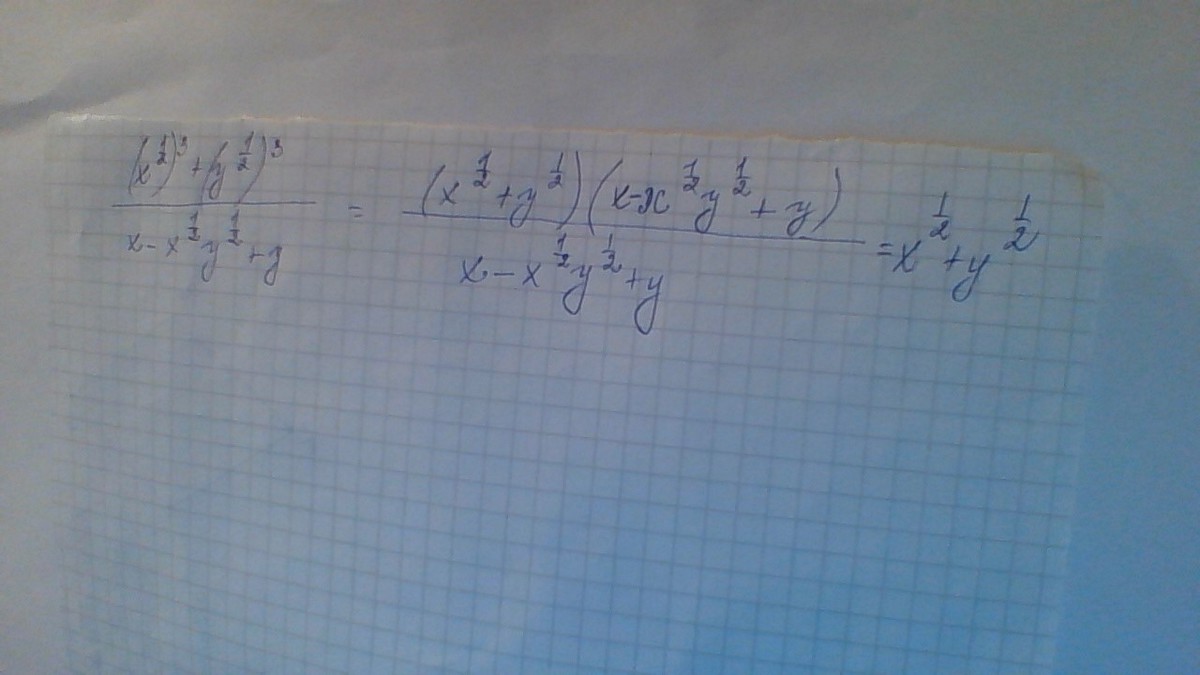 \frac{(x^{\frac{1}{2}})^3 + (y^{\frac{1}{2}})^3}{x - x^{\frac{1}{2}} y^{\frac{1}{2}} + y} = \frac{(x^{\frac{1}{2}} + y^{\frac{1}{2}})(x - x^{\frac{1}{2}} y^{\frac{1}{2}} + y)}{x - x^{\frac{1}{2}} y^{\frac{1}{2}} + y} = x^{\frac{1}{2}} + y^{\frac{1}{2}}